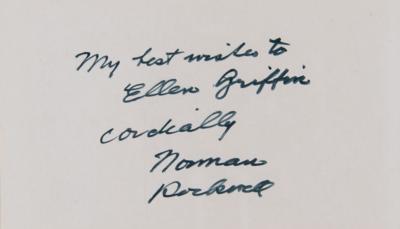 My best wishes to
Ellen Griffin
cordially
Norman
Rockwell